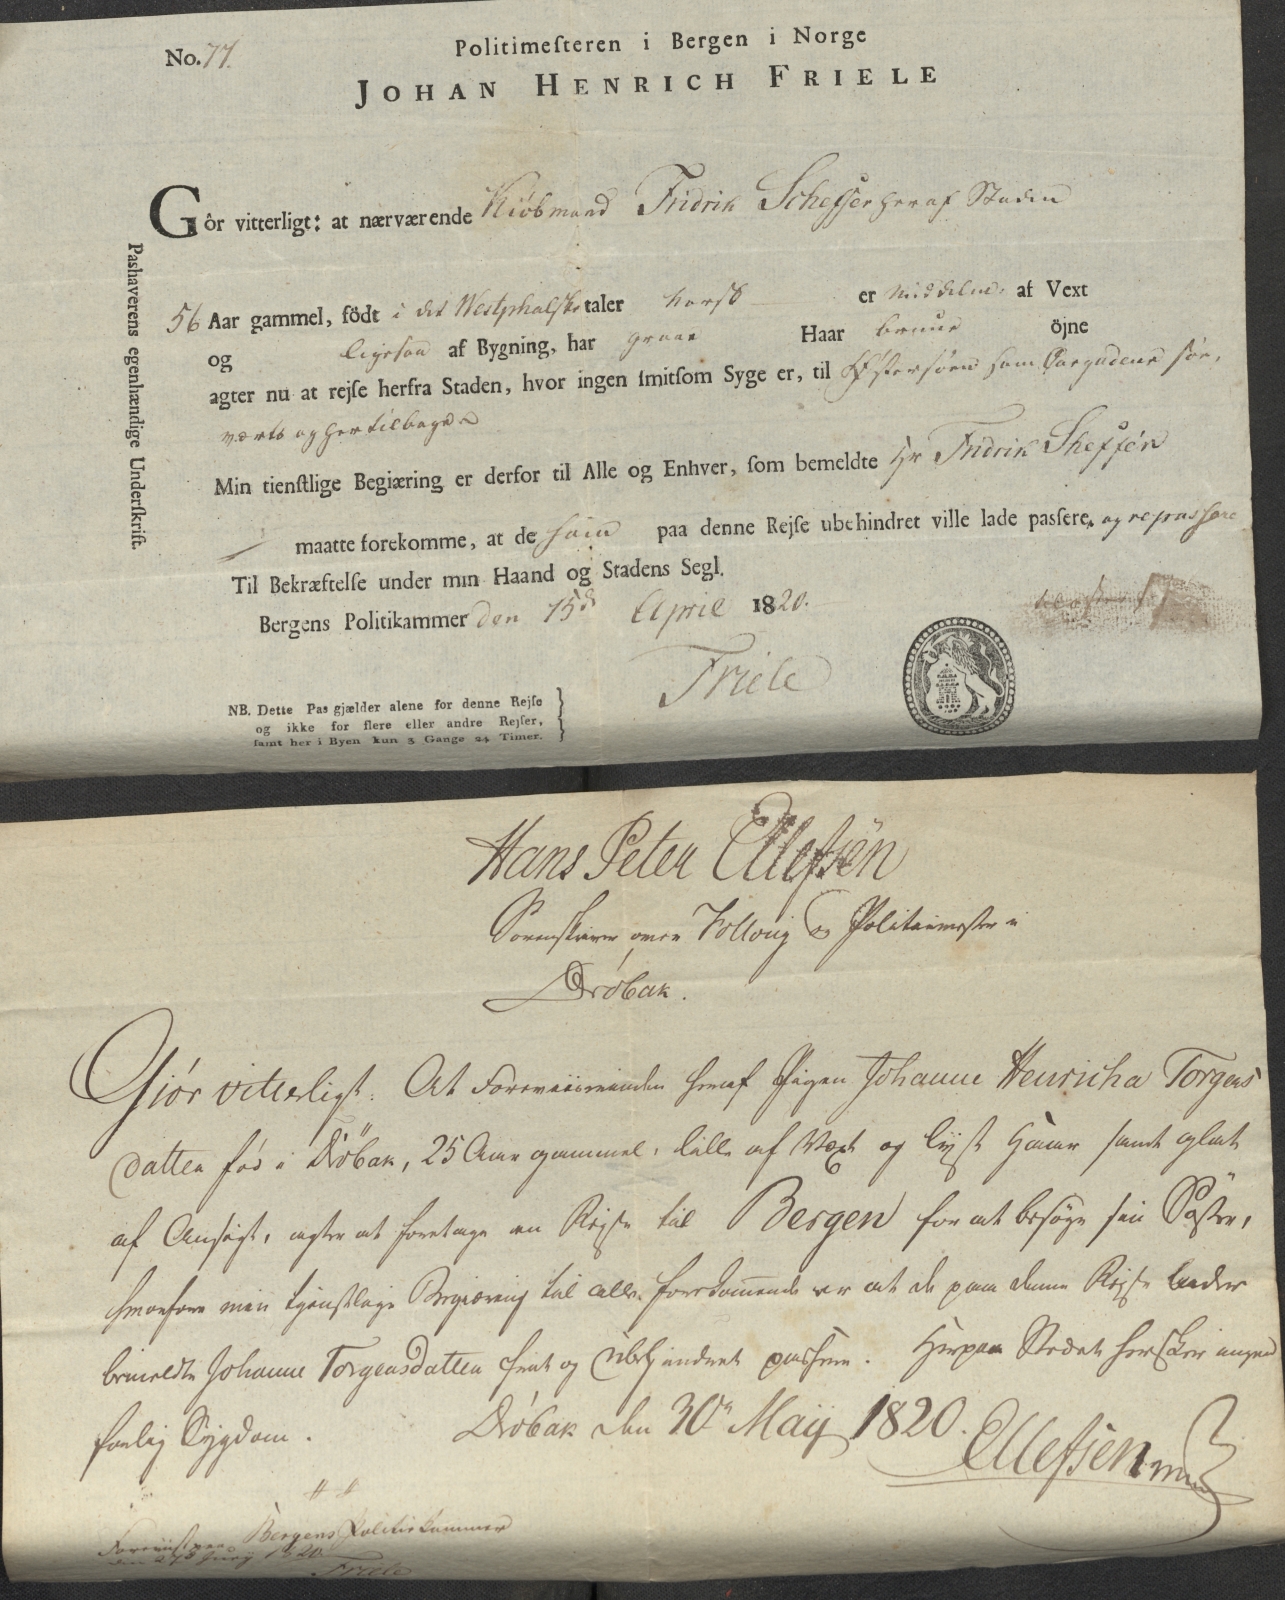 No. 77.
Politimeſteren i Bergen i Norge
JOHAN HENRICH FRIELE
Gôr vitterligt: at nærværende Kiöbmand Fridrik Scheffer heraf Staden
56 Aar gammel, födt i det Westphalske taler norsk er middelm. af Vext
og ligesaa af Bygning, har graae Haar brune öjne
agter nu at rejſe herfra Staden, hvor ingen ſmitſom Syge er, til Östersöen som Cargadeur söe,
værts og her tilbage
Min tienſtlige Begiæring er derfor til Alle og Enhver, ſom bemeldte Hr Fridrik Sheffer
maatte forekomme, at de ham paa denne Rejſe ubehindret ville lade paſſere, og repassere
Til Bekræftelſe under min Haand og Stadens Segl.
Bergens Politikammer den 15de April 1820.
Friele
NB. Dette Pas gjælder alene for denne Rejſe
og ikke for flere eller andre Rejſer,
ſamt her i Byen kun 3 Gange 24 Timer.
Pashaverens egenhændige Underſkrift.
Hans Peter Ellefsen
Sorenskriver over Folloug og Politiemester i
Dröbak.
Giör vitterligt: At Foreviiserinden heraf Pigen Johanne Henricha Torgens
datter föd i Dröbak, 25 Aar gammel, lille af Vext og lyst Haar samt glat
af Ansigt, agter at foretage en Rejse til Bergen for at besöge sin Söster,
hvorfore min tjenstlige Begiæring til alle forekommende er at de paa denne Rejse lader
bemeldte Johanne Torgensdatter frit og ubehindret passere. Her paa Stedet hersker ingen
farlig Sygdom.
Dröbak den 30te Maij 1820.
Ellefsen
Foreviist paa Bergens Politie Kammer
den Junÿ 1820
Friele